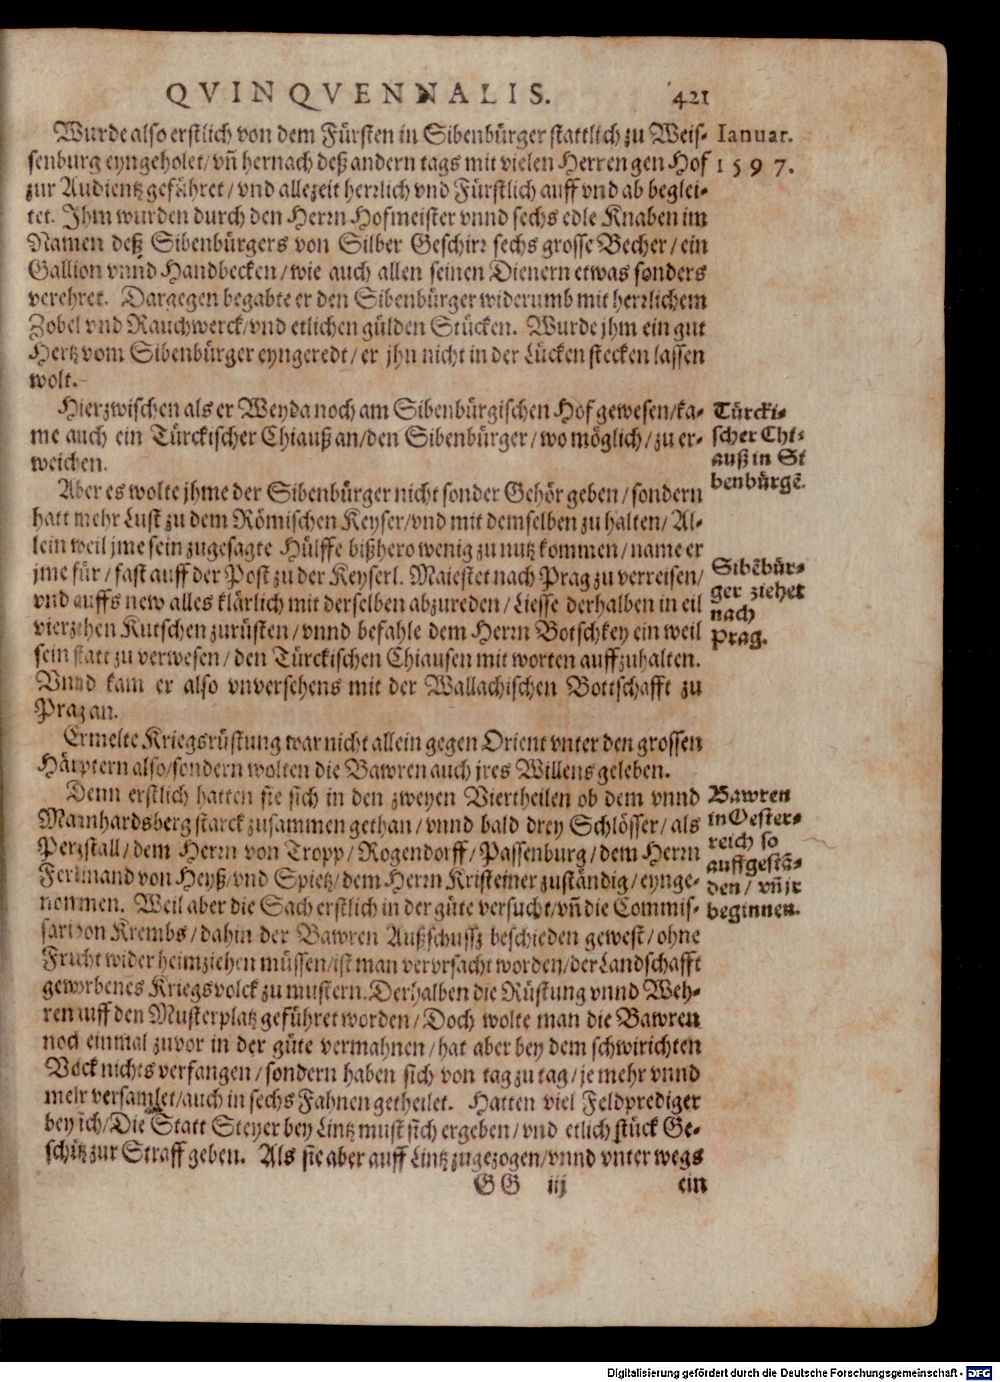 QVINQVENNALIS. 421
Wurde also erstlich von dem Fürsten in Sibenbürger stattlich zu Weis-
Ianuar.
senburg eyngeholet / vñ hernach deß andern tags mit vielen Herren gen Hof
1597.
zur Audientz geführet / vnd allezeit herrlich vnd Fürstlich auff vnd ab beglei-
tet. Ihm wurden durch den Herrn Hofmeister vnnd sechs edle Knaben im
Namen deß Sibenbürgers von Silber Geschirr sechs grosse Becher / ein
Gallion vnnd Handbecken / wie auch allen seinen Dienern etwas sonders
verehret. Dargegen begabte er den Sibenbürger widerumb mit herrlichem
Zobel vnd Rauchwerck / vnd etlichen gülden Stücken. Wurde jhm ein gut
Hertz vom Sibenbürger eyngeredt / er jhn nicht in der Lücken stecken lassen
wolt.
Hierzwischen als er Weyda noch am Sibenbürgischen Hof gewesen / ka-
me auch ein Türckischer Chiauß an / den Sibenbürger / wo möglich / zu er-
weichen.
Türcki-
scher Chi-
auß in Si
benbürgẽ.
Aber es wolte jhme der Sibenbürger nicht sonder Gehör geben / sondern
hatt mehr Lust zu dem Römischen Keyser / vnd mit demselben zu halten / Al-
lein weil jme sein zugesagte Hülffe bißhero wenig zu nutz kommen / name er
jme für / fast auff der Post zu der Keyserl. Maiestet nach Prag zu verreisen /
vnd auffs new alles klärlich mit derselben abzureden / Liesse derhalben in eil
vierzehen Kutschen zurüsten / vnnd befahle dem Herrn Botschkey ein weil
sein statt zu verwesen / den Türckischen Chiausen mit worten auffzuhalten.
Vnnd kam er also vnversehens mit der Wallachischen Bottschafft zu
Prag an.
Sibẽbür-
ger ziehet
nach
Prag.
Ermelte Kriegsrüstung war nicht allein gegen Orient vnter den grossen
Häuptern also / sondern wolten die Bawren auch jres Willens geleben.
Denn erstlich hatten sie sich in den zweyen Viertheilen ob dem vnnd
Mainhardsberg starck zusammen gethan / vnnd bald drey Schlösser / als
Perzstall / dem Herrn von Tropp / Rogendorff / Passenburg / dem Herrn
Ferdinand von Heyß / vnd Spietz / dem Herrn Kristeiner zuständig / eynge-
nommen. Weil aber die Sach erstlich in der güte versucht / vñ die Commis-
sari von Krembs / dahin der Bawren Außschussz beschieden gewest / ohne
Frucht wider heimziehen müssen / ist man vervrsacht worden / der Landschafft
geworbenes Kriegsvolck zu mustern. Derhalben die Rüstung vnnd Weh-
ren auff den Musterplatz geführet worden / Doch wolte man die Bawren
noch einmal zuvor in der güte vermahnen / hat aber bey dem schwirichten
Volck nichts verfangen / sondern haben sich von tag zu tag / je mehr vnnd
mehr versamlet / auch in sechs Fahnen getheilet. Hatten viel Feldprediger
bey sich / Die Statt Steyer bey Lintz must sich ergeben / vnd etlich stück Ge-
schütz zur Straff geben. Als sie aber auff Lintz zugezogen / vnnd vnter wegs
Bawren
in Oester-
reich so
auffgestã-
den / vñ jr
beginnen.
GG iij ein
Digitalisierung gefördert durch die Deutsche Forschungsgemeinschaft - DFG